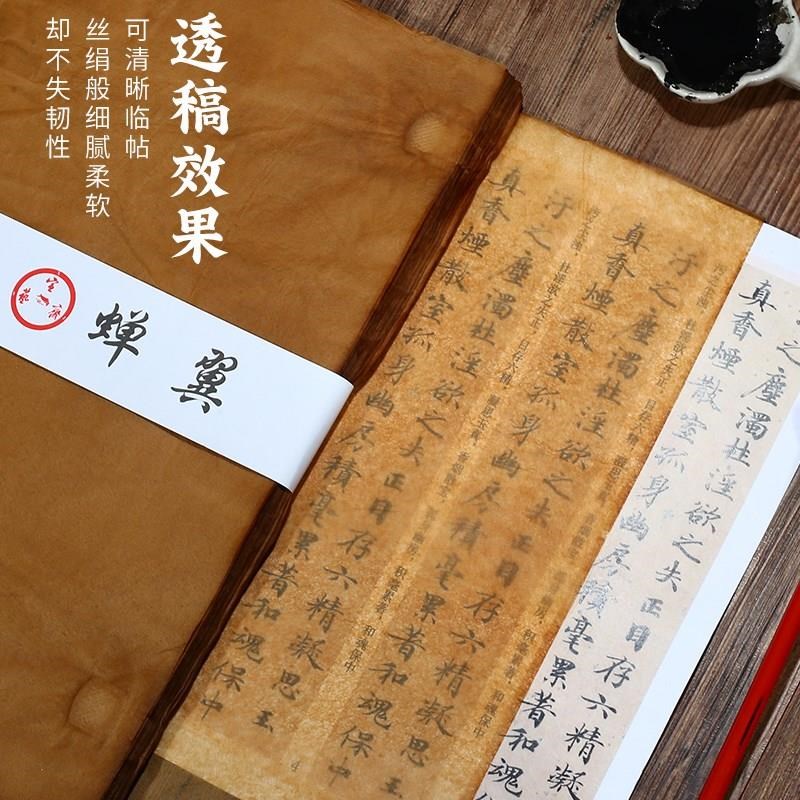 透稿效果
可清晰临帖
丝绢般细腻柔软
却不失韧性
蝉翼
之塵濁杜淫欲之失正目存六精凝
真香煙散室孤身幽房積毫累著和魂
汙之塵濁杜淫欲之失正目存六精凝思玉
真香煙散室孤身幽房積毫累著和魂保中
汙之塵濁杜淫欲之失正目存六精凝思玉
真香煙散室孤身幽房積毫累著和魂保中